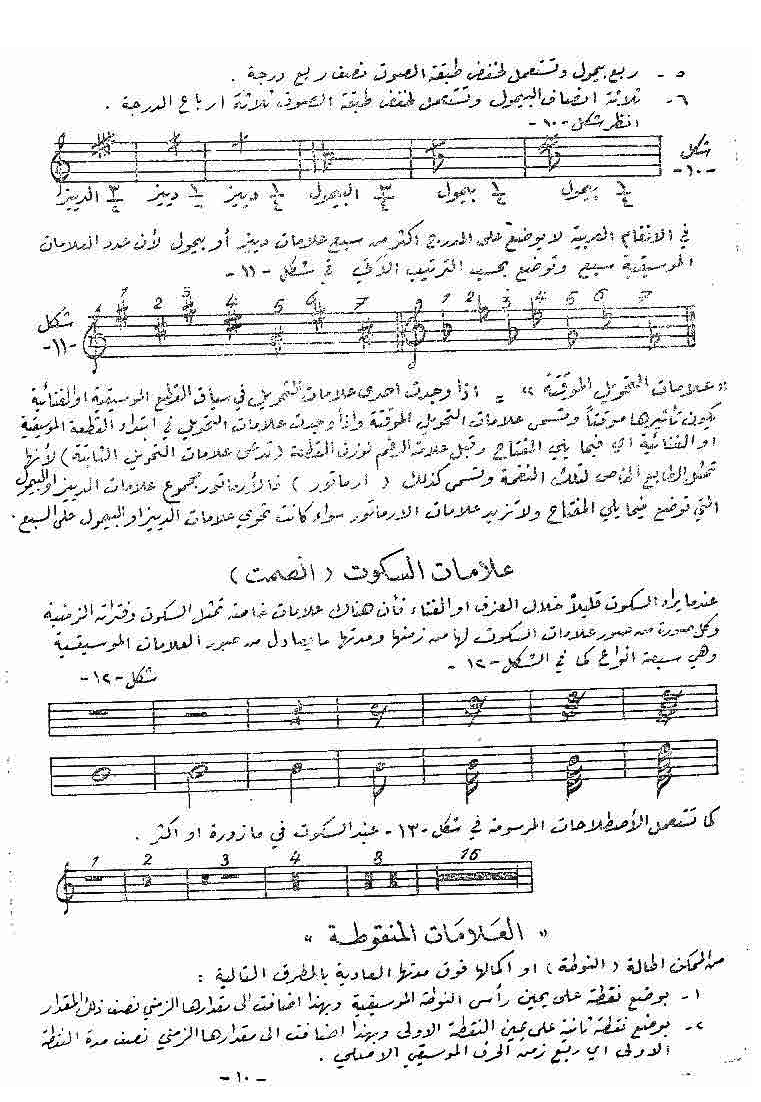 ٥- ربع بيمول وتستعمل لخفض طبقة الصوت نصف ربع درجة .
٦- ثلاثة انصاف البيمول وتستعمل لخفض طبقة الصوت ثلاثة ارباع الدرجة .
انظر شكل -١٠-
شكل
-١٠-
٣/٤ الدييز ١/٢ دييز ١/٤ دييز ٣/٤ البيمول ١/٢ بيمول ١/٤ بيمول
في الانغام العربية لا يوضع على المدرج اكثر من سبع علامات دييز أو بيمول لأن عدد العلامات
الموسيقية سبع وتوضع بحسب الترتيب الآتي في شكل -١١-
1 2 3 4 5 6 7 1 2 3 4 5 6 7
شكل
-١١-
« علامات التحويل الموقتة » = اذا وجدت احدى علامات التحويل في سياق القطع الموسيقية او الغنائية
يكون تأثيرها موقتاً وتسمى علامات التحويل الموقتة واذا وجدت علامات التحويل في ابتداء القطعة الموسيقية
او الغنائية اي فيما يلي المفتاح وقبل علامة الرقم لوزن القطعة ( تدعى علامات التحويل الثابتة ) لأنها
تمثل الطابع الخاص لتلك النغمة وتسمى كذلك ( ارماتور ) فالأرماتور مجموع علامات الدييز او البيمول
التي توضع فيما يلي المفتاح ولا تزيد علامات الارماتور سواء كانت تحوي علامات الدييز او البيمول على السبع .
علامات السكوت ( الصمت )
عندما يراد السكوت قليلاً خلال العزف او الغناء فأن هناك علامات خاصة تمثل السكوت وفتراته الزمنية
وكل صورة من صور علامات السكوت لها من زمنها ومدتها ما يعادل من صور العلامات الموسيقية
وهي سبعة انواع كما في الشكل -١٢-
شكل -١٢-
كما تستعمل الأصطلاحات المرسومة في شكل -١٣- عند السكوت في مازورة او اكثر .
1 2 3 4 8 16
« العلامات المنقوطة »
من الممكن اطالة ( النوطة ) او اكمالها فوق مدتها العادية بالطرق التالية :
١- بوضع نقطة على يمين رأس النوطة الموسيقية وبهذا اضافت الى مقدارها الزمني نصف ذلك المقدار
٢- بوضع نقطة ثانية على يمين النقطة الاولى وبهذا اضافت الى مقدارها الزمني نصف مدة النقطة
الاولى اي ربع زمن الحرف الموسيقي الاصلي .
-١٠-